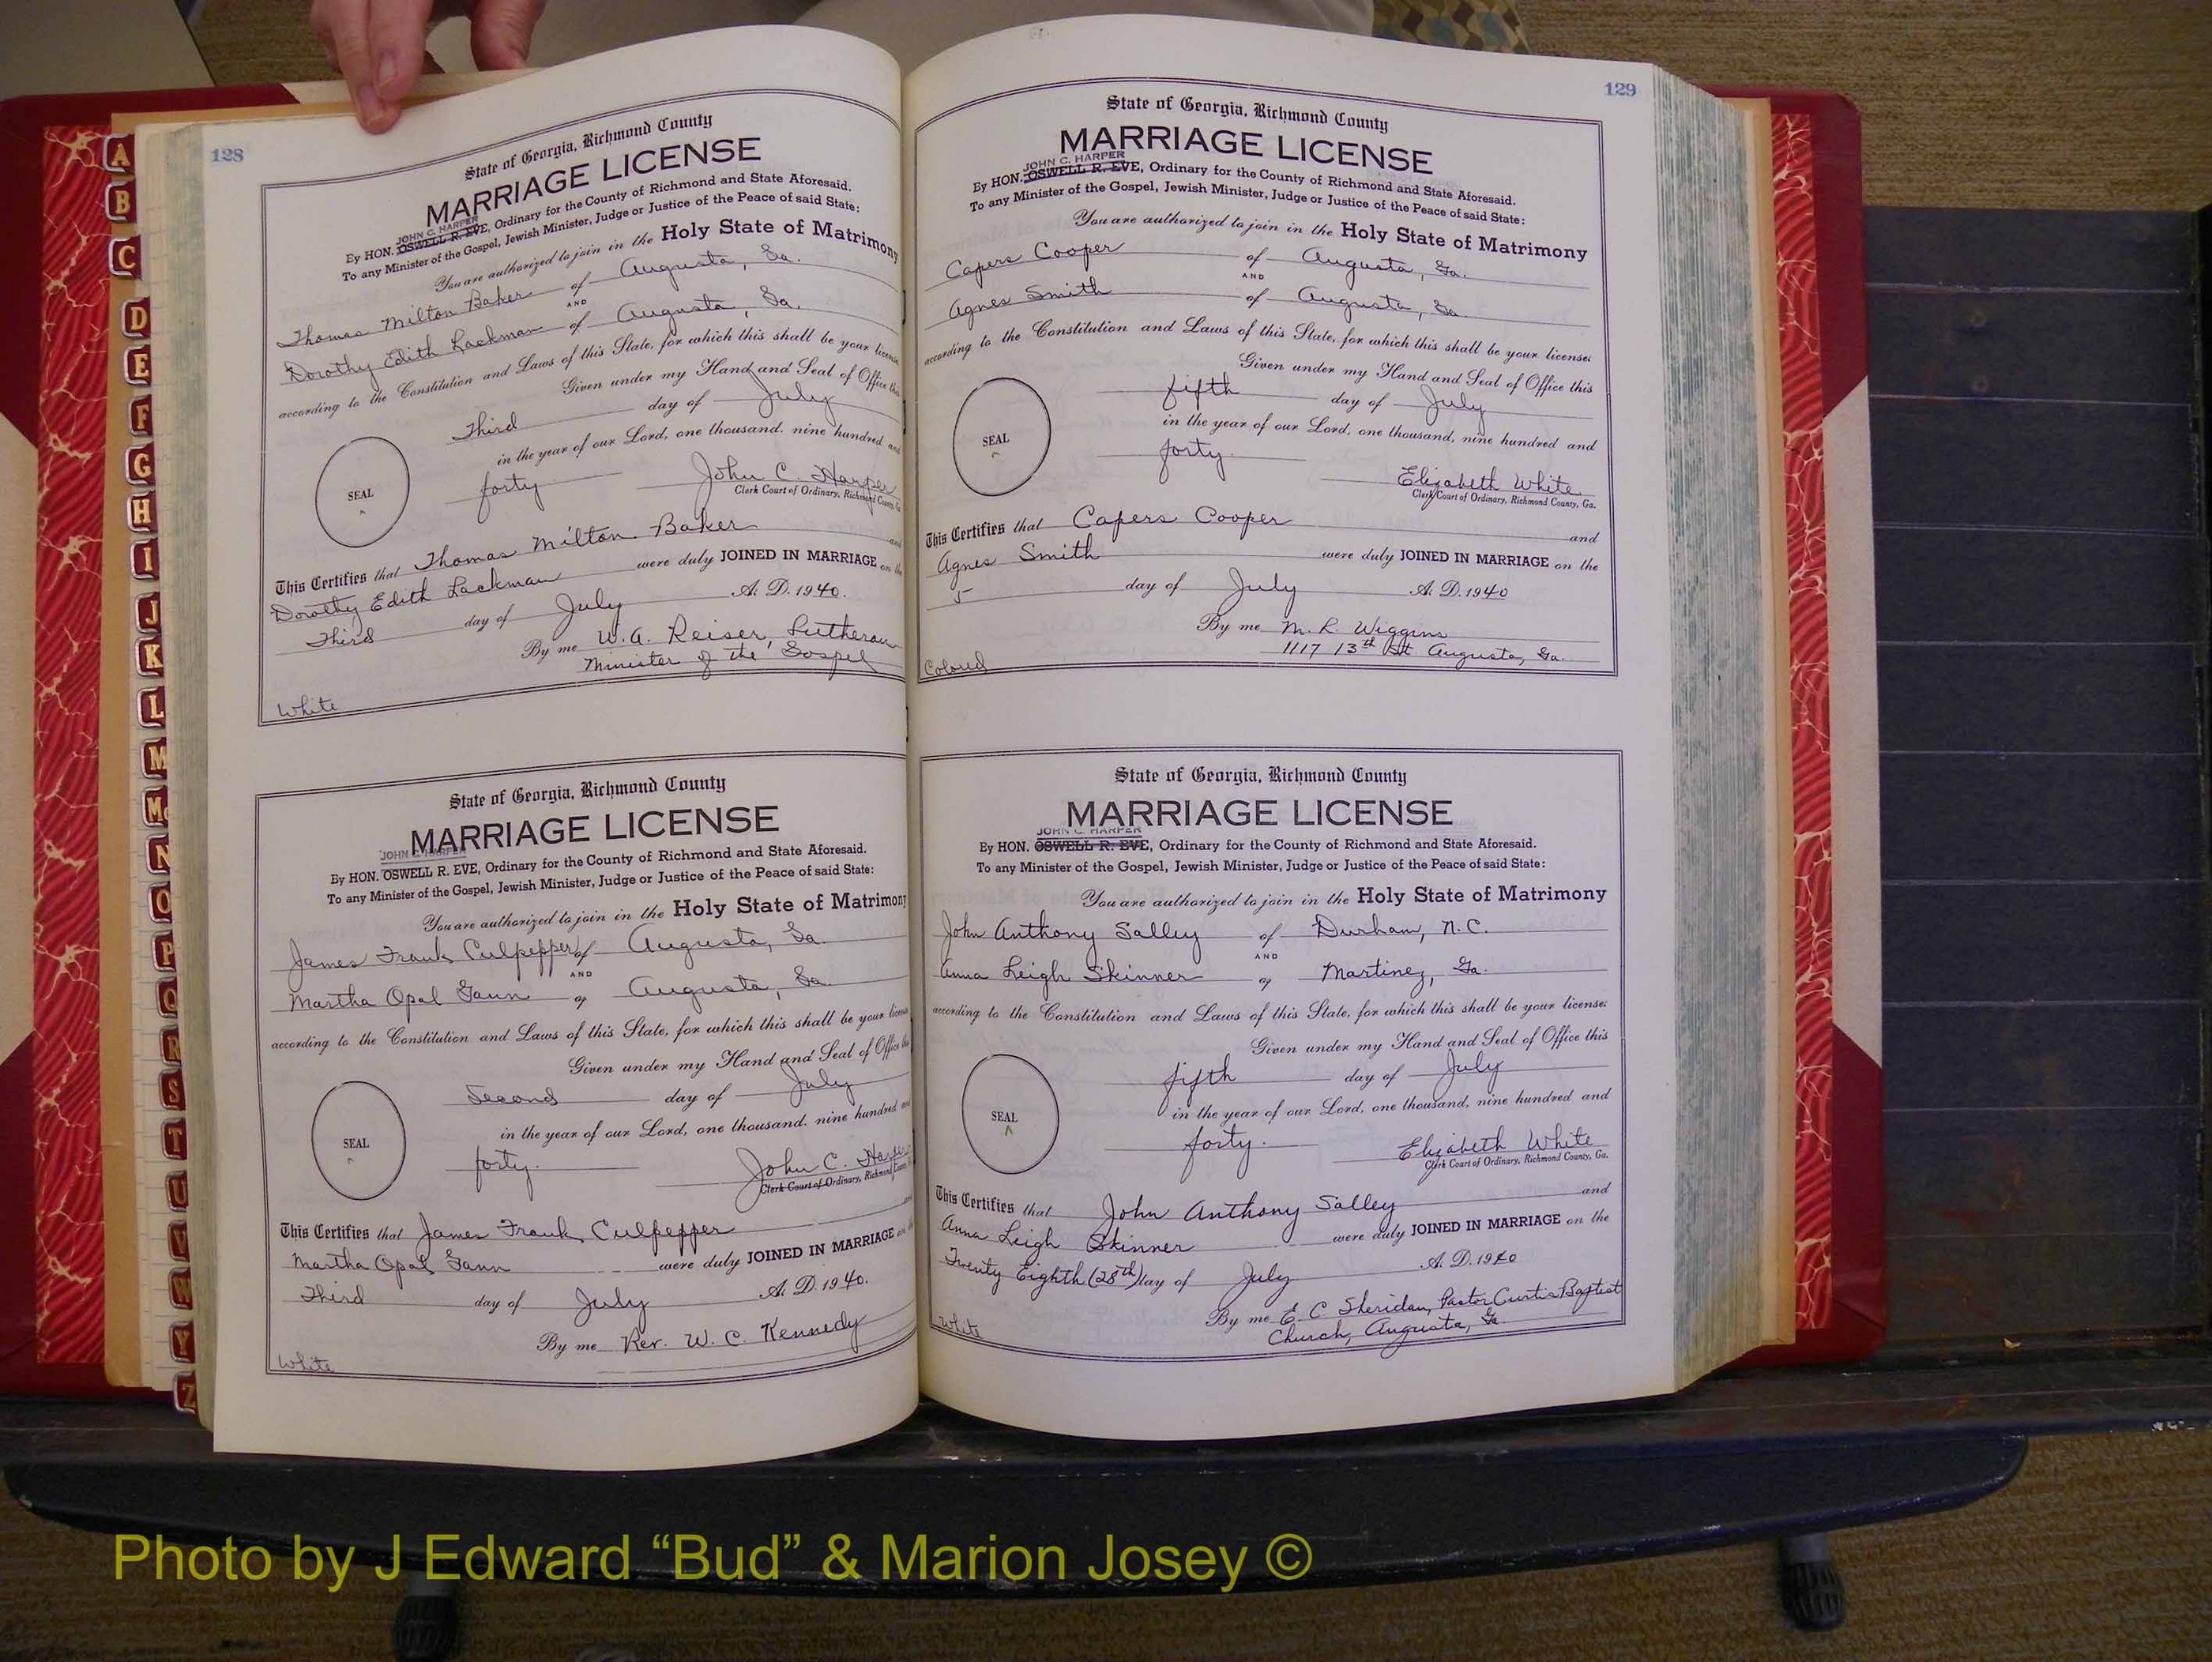 128
State of Georgia, Richmond County
MARRIAGE LICENSE
JOHN C. HARPER
By HON. OSWELL R. EVE, Ordinary for the County of Richmond and State Aforesaid.
To any Minister of the Gospel, Jewish Minister, Judge or Justice of the Peace of said State:
You are authorized to join in the Holy State of Matrimony
Thomas Milton Baker of Augusta, Ga.
AND
Dorothy Edith Lackman of Augusta, Ga.
according to the Constitution and Laws of this State, for which this shall be your license
Given under my Hand and Seal of Office this
Third day of July
in the year of our Lord, one thousand, nine hundred and
SEAL
forty John C. Harper
Clerk Court of Ordinary, Richmond County, Ga
This Certifies that Thomas Milton Baker and
Dorothy Edith Lackman were duly JOINED IN MARRIAGE on the
Third day of July A. D. 1940.
By me W. A. Reiser, Lutheran
Minister of the Gospel
White
State of Georgia, Richmond County
MARRIAGE LICENSE
JOHN C. HARPER
By HON. OSWELL R. EVE, Ordinary for the County of Richmond and State Aforesaid.
To any Minister of the Gospel, Jewish Minister, Judge or Justice of the Peace of said State:
You are authorized to join in the Holy State of Matrimony
James Frank Culpepper of Augusta, Ga.
AND
Martha Opal Gann of Augusta, Ga.
according to the Constitution and Laws of this State, for which this shall be your license
Given under my Hand and Seal of Office this
Second day of July
in the year of our Lord, one thousand, nine hundred and
SEAL
forty. John C. Harper
Clerk Court of Ordinary, Richmond County
This Certifies that James Frank Culpepper and
Martha Opal Gann were duly JOINED IN MARRIAGE on the
Third day of July A. D. 1940.
By me Rev. W. C. Kennedy
White
129
State of Georgia, Richmond County
MARRIAGE LICENSE
JOHN C. HARPER
By HON. OSWELL R. EVE, Ordinary for the County of Richmond and State Aforesaid.
To any Minister of the Gospel, Jewish Minister, Judge or Justice of the Peace of said State:
You are authorized to join in the Holy State of Matrimony
Capers Cooper of Augusta, Ga.
AND
Agnes Smith of Augusta, Ga.
according to the Constitution and Laws of this State, for which this shall be your license:
Given under my Hand and Seal of Office this
fifth day of July
in the year of our Lord, one thousand, nine hundred and
SEAL
forty. Elizabeth White
Clerk Court of Ordinary, Richmond County, Ga.
This Certifies that Capers Cooper and
Agnes Smith were duly JOINED IN MARRIAGE on the
5 day of July A. D. 1940
By me M. R. Wiggins
1117 13th St. Augusta, Ga.
Colored
State of Georgia, Richmond County
MARRIAGE LICENSE
JOHN C. HARPER
By HON. OSWELL R. EVE, Ordinary for the County of Richmond and State Aforesaid.
To any Minister of the Gospel, Jewish Minister, Judge or Justice of the Peace of said State:
You are authorized to join in the Holy State of Matrimony
John Anthony Salley of Durham, N.C.
AND
Anna Leigh Skinner of Martinez, Ga.
according to the Constitution and Laws of this State, for which this shall be your license:
Given under my Hand and Seal of Office this
fifth day of July
in the year of our Lord, one thousand, nine hundred and
SEAL
forty. Elizabeth White
Clerk Court of Ordinary, Richmond County, Ga.
This Certifies that John Anthony Salley and
Anna Leigh Skinner were duly JOINED IN MARRIAGE on the
Twenty Eighth (28th) day of July A. D. 1940
By me E. C. Sheridan, Pastor Curtis Baptist
Church, Augusta, Ga
White
A
B
C
D
E
F
G
H
I
J
K
L
M
Mc
N
O
P
Q
R
S
T
U
V
W
Y
Z
Photo by J Edward “Bud” & Marion Josey ©